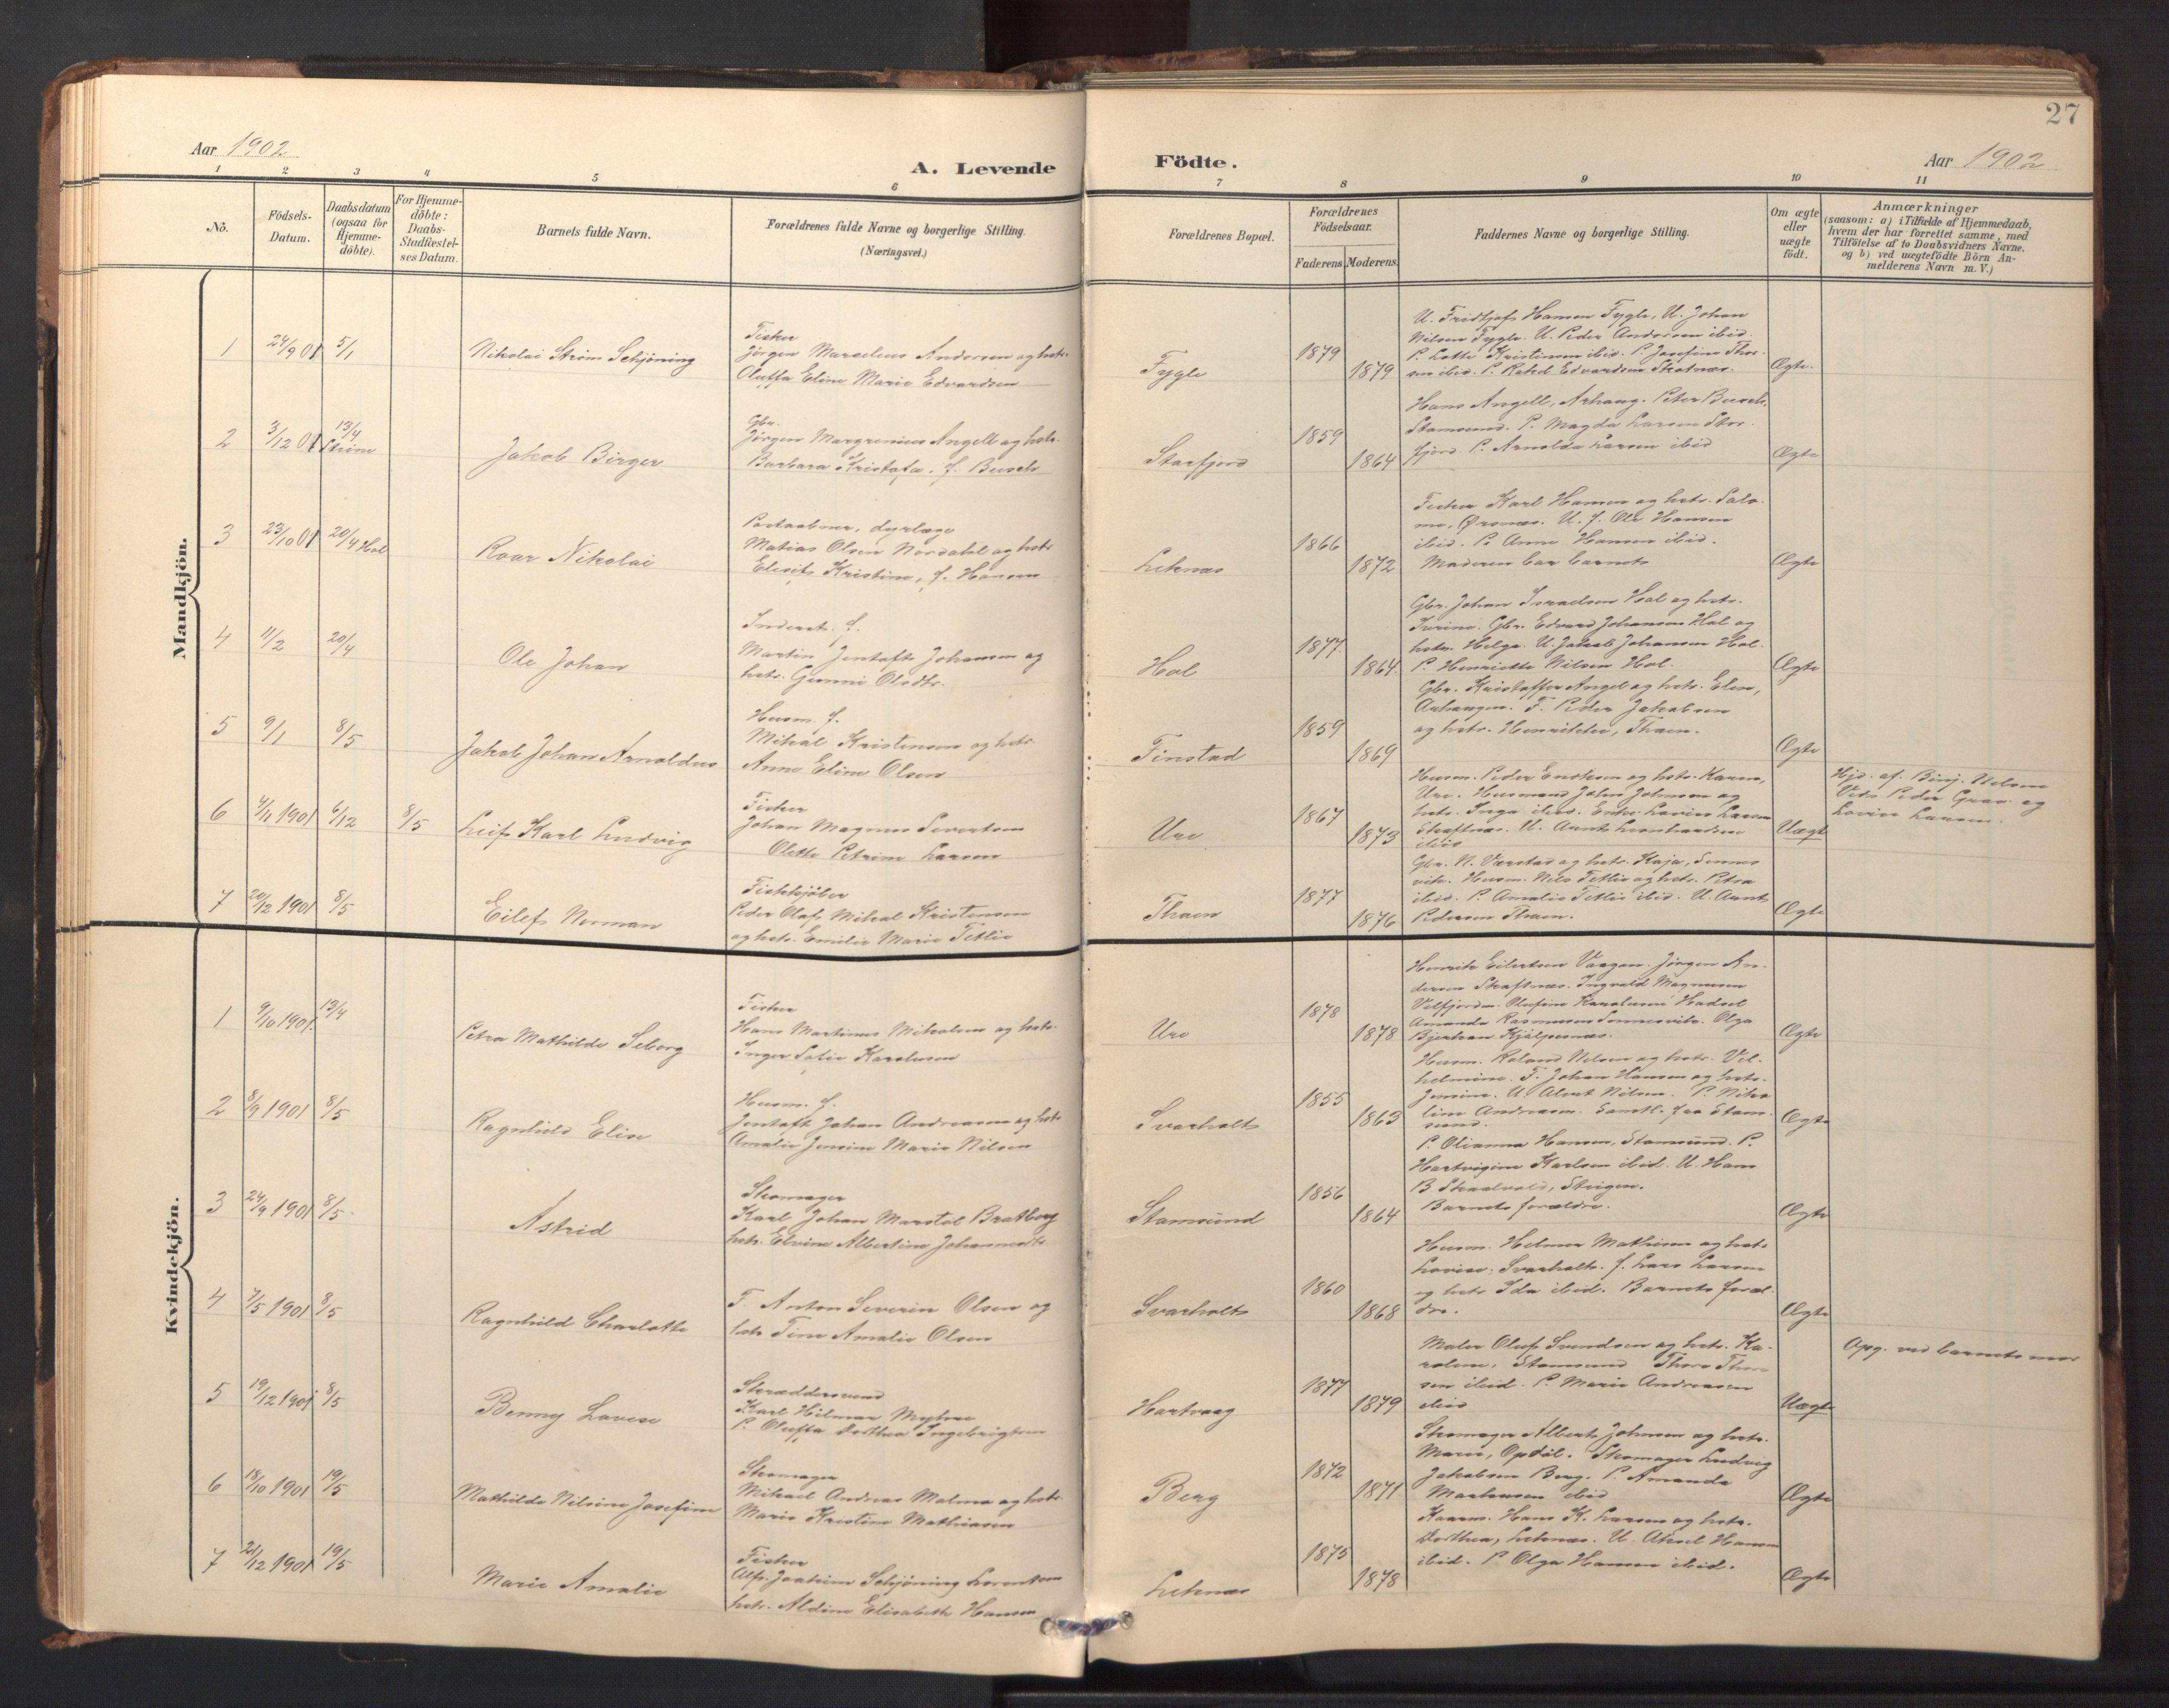 27
Aar 1902
A. Levende
Födte.
Aar 1902
1 2 3 4 5 6 7 8 9 10 11
No.
Födsels-
Datum.
Daabsdatum
(ogsaa for
Hjemme-
döbte).
For Hjemme-
döbte:
Daabs-
Stadfæstel-
ses Datum.
Barnets fulde Navn.
Forældrenes fulde Navne og borgerlige Stilling.
(Næringsvei.)
Forældrenes Bopæl.
Forældrenes
Födselsaar.
Faderens. Moderens.
Faddernes Navne og borgerlige Stilling.
Om ægte
eller
uægte
födt.
Anmærkninger
(saasom: a) i Tilfælde af Hjemmedaab,
hvem der har forrettet samme, med
Tilföielse af to Daabsvidners Navne.
og b) ved uægtefödte Börn An-
melderens Navn m. V.)
Mandkjön.
1 24/9 01 5/1 Nikolai Strøm Schjøning
Fisker
Jørgen Marselius Andersen og hstr.
Oluffa Eline Marie Edvardsen
Fygle 1879 1879
U. Fridtjof Hansen Fygle, U. Johan
Nilsen Fygle. U. Peder Andersen ibid.
P. Lotte Kristensen ibid. P. Josefine Thor-
sen ibid. P. Rakel Edvardsen Skotnæs.
Ægte.
2 3/12 01 13/4 Jakob Birger
Gbr.
Jørgen Margrenius Angell og hstr.
Barbara Kristofa, f. Busch
Storfjord 1859 1864
Hans Angell, Arhaug. Peter Busch,
Stamsund. P. Magda Larsen Stor-
fjord. P. Arnolda Larsen ibid
Ægte
3 23/10 01 20/4 Hol Roar Nikolai
Postaabner, dyrlæge
Matias Olsen Nordahl og hstr
Elesif Kristine, f. Hansen
Leknæs 1866 1872
Fisker Karl Hansen og hstr. Salo-
me, Ørsnæs. U. f. Ole Hansen
ibid. P. Anne Hansen ibid.
Moderen bar barnet
Ægte
4 11/2 20/4 Ole Johan
Inderst. f.
Martin Jentoft Johansen og
hstr. Gunni Olsdtr.
Hol 1877 1864
Gbr. Johan Israelsen Hol og hstr.
Gbr. Edvard Johansen Hol og
hstr. Helga. U. Jakob Johansen Hol.
P. Henriette Nilsen Hol.
Ægte
5 9/1 8/5 Jakob Johan Arnoldus
Husm. f.
Mikal Kristensen og hstr
Anne Eline Olsen
Finstad 1859 1869
Gbr. Kristoffer Angel og hstr. Elen,
F. Peder Jakobsen
og hstr. Henrikke, Thoen.
Ægte
6 4/11 1901 6/12 8/5 Leif Karl Ludvig
Fisker
Johan Magnus Sivertsen
Olette Petrine Larsen
Ure 1867 1873
Husm. Peder Enoksen og hstr. Karen,
Ure. Husmand John Johnsen og
hstr. Inga ibid. Enke Lovise Larsen
U. Aunt Leonhardsen
ibid
Uægt
Hjd. af. Binj. Nilsen
Vidn Peder Grav og
Lovise Larsen.
7 20/12 1901 8/5 Eilef Norman
Fiskekjøber
Peder Olaf Mikal Kristensen
og hstr. Emilie Marie Tetlie
Thoen 1877 1876
Gbr. N. Værstad og hstr. Kaja, Sennes-
vik. Husm. Nils Tetlie og hstr. Petra
ibid. P. Amalie Tetlie ibid. U. Aunt
Pedersen Thoen.
Ægte
Kvindekjön.
1 9/10 1901 13/4 Petra Mathilde Seborg
Fisker
Hans Martinus Mikalsen og hstr.
Inger Sofie Karolusen
Ure 1878 1878
Henrik Eilertsen Vaagan. Jørgen An-
dersen Skaftnæs. Ingvald Magnusen
Velfjorden. Olufine Karolusen Hadsel
Amanda Rasmussen Sennesvik. Olga
Bjerkan
Ægte
2 8/9 1901 8/5 Ragnhild Elise
Husm. f.
Jentoft Johan Andreasen og hstr
Amalie Jensine Marie Nilsen
Svarholt 1855 1863
Husm. Roland Nilsen og hstr. Vil-
helmine. F. Johan Hansen og hstr.
Jensine. U. Alvert Nilsen. P. Niko-
line Andreasen. Samtl. fra Stam-
sund.
Ægte
3 24/9 1901 8/5 Astrid
Skomager
Karl Johan Marstol Bratberg
hstr. Elvine Albertine Johannesdtr
Stamsund 1856 1864
P. Olianna Hansen, Stamsund. P.
Hartvigine Karlsen ibid. U. Hans
B Steigen.
Barnets forældre.
Ægte
4 7/5 1901 8/5 Ragnhild Charlotte
F. Anton Severin Olsen og
hstr Tine Amalie Olsen
Svarholt 1860 1868
Husm. Helmer Mathisen og hstr
Lovise, Svarholt. f. Lars Larsen
og hstr Ida ibid. Barnets foræl-
dre.
Ægte
5 19/12 1901 8/5 Benny Lovise
Skræddersvend
Karl Hilmar Myhre
P. Oluffa Dorthea Ingebrigtsen
Hartvaag 1877 1879
Maler Oluf Svendsen og hstr. Ka-
roline, Stamsund Thora Thor-
sen ibid. P. Marie Andreasen
ibid
Uægte
Opg. ved barnets mor
6 18/10 1901 19/5 Mathilde Nilsine Josefine
Skomager
Mikael Andreas Malmo og hstr.
Marie Kristine Mathiasen
Berg 1872 1871
Skomager Albert Johnsen og hstr.
Marie, Opdøl. Skomager Ludvig
Jakobsen Berg. P. Amanda
ibid
Ægte
7 21/12 1901 19/5 Marie Amalie
Fisker
Alf Joakim Schjøning Lorentsen
hstr. Aldine Elisabeth Hansen
Leknæs 1875 1878
Kaarm. Hans K. Larsen og hstr.
Dorthea, Leknæs. U. Aksel Hansen
ibid. P Olga Hansen ibid.
Ægte